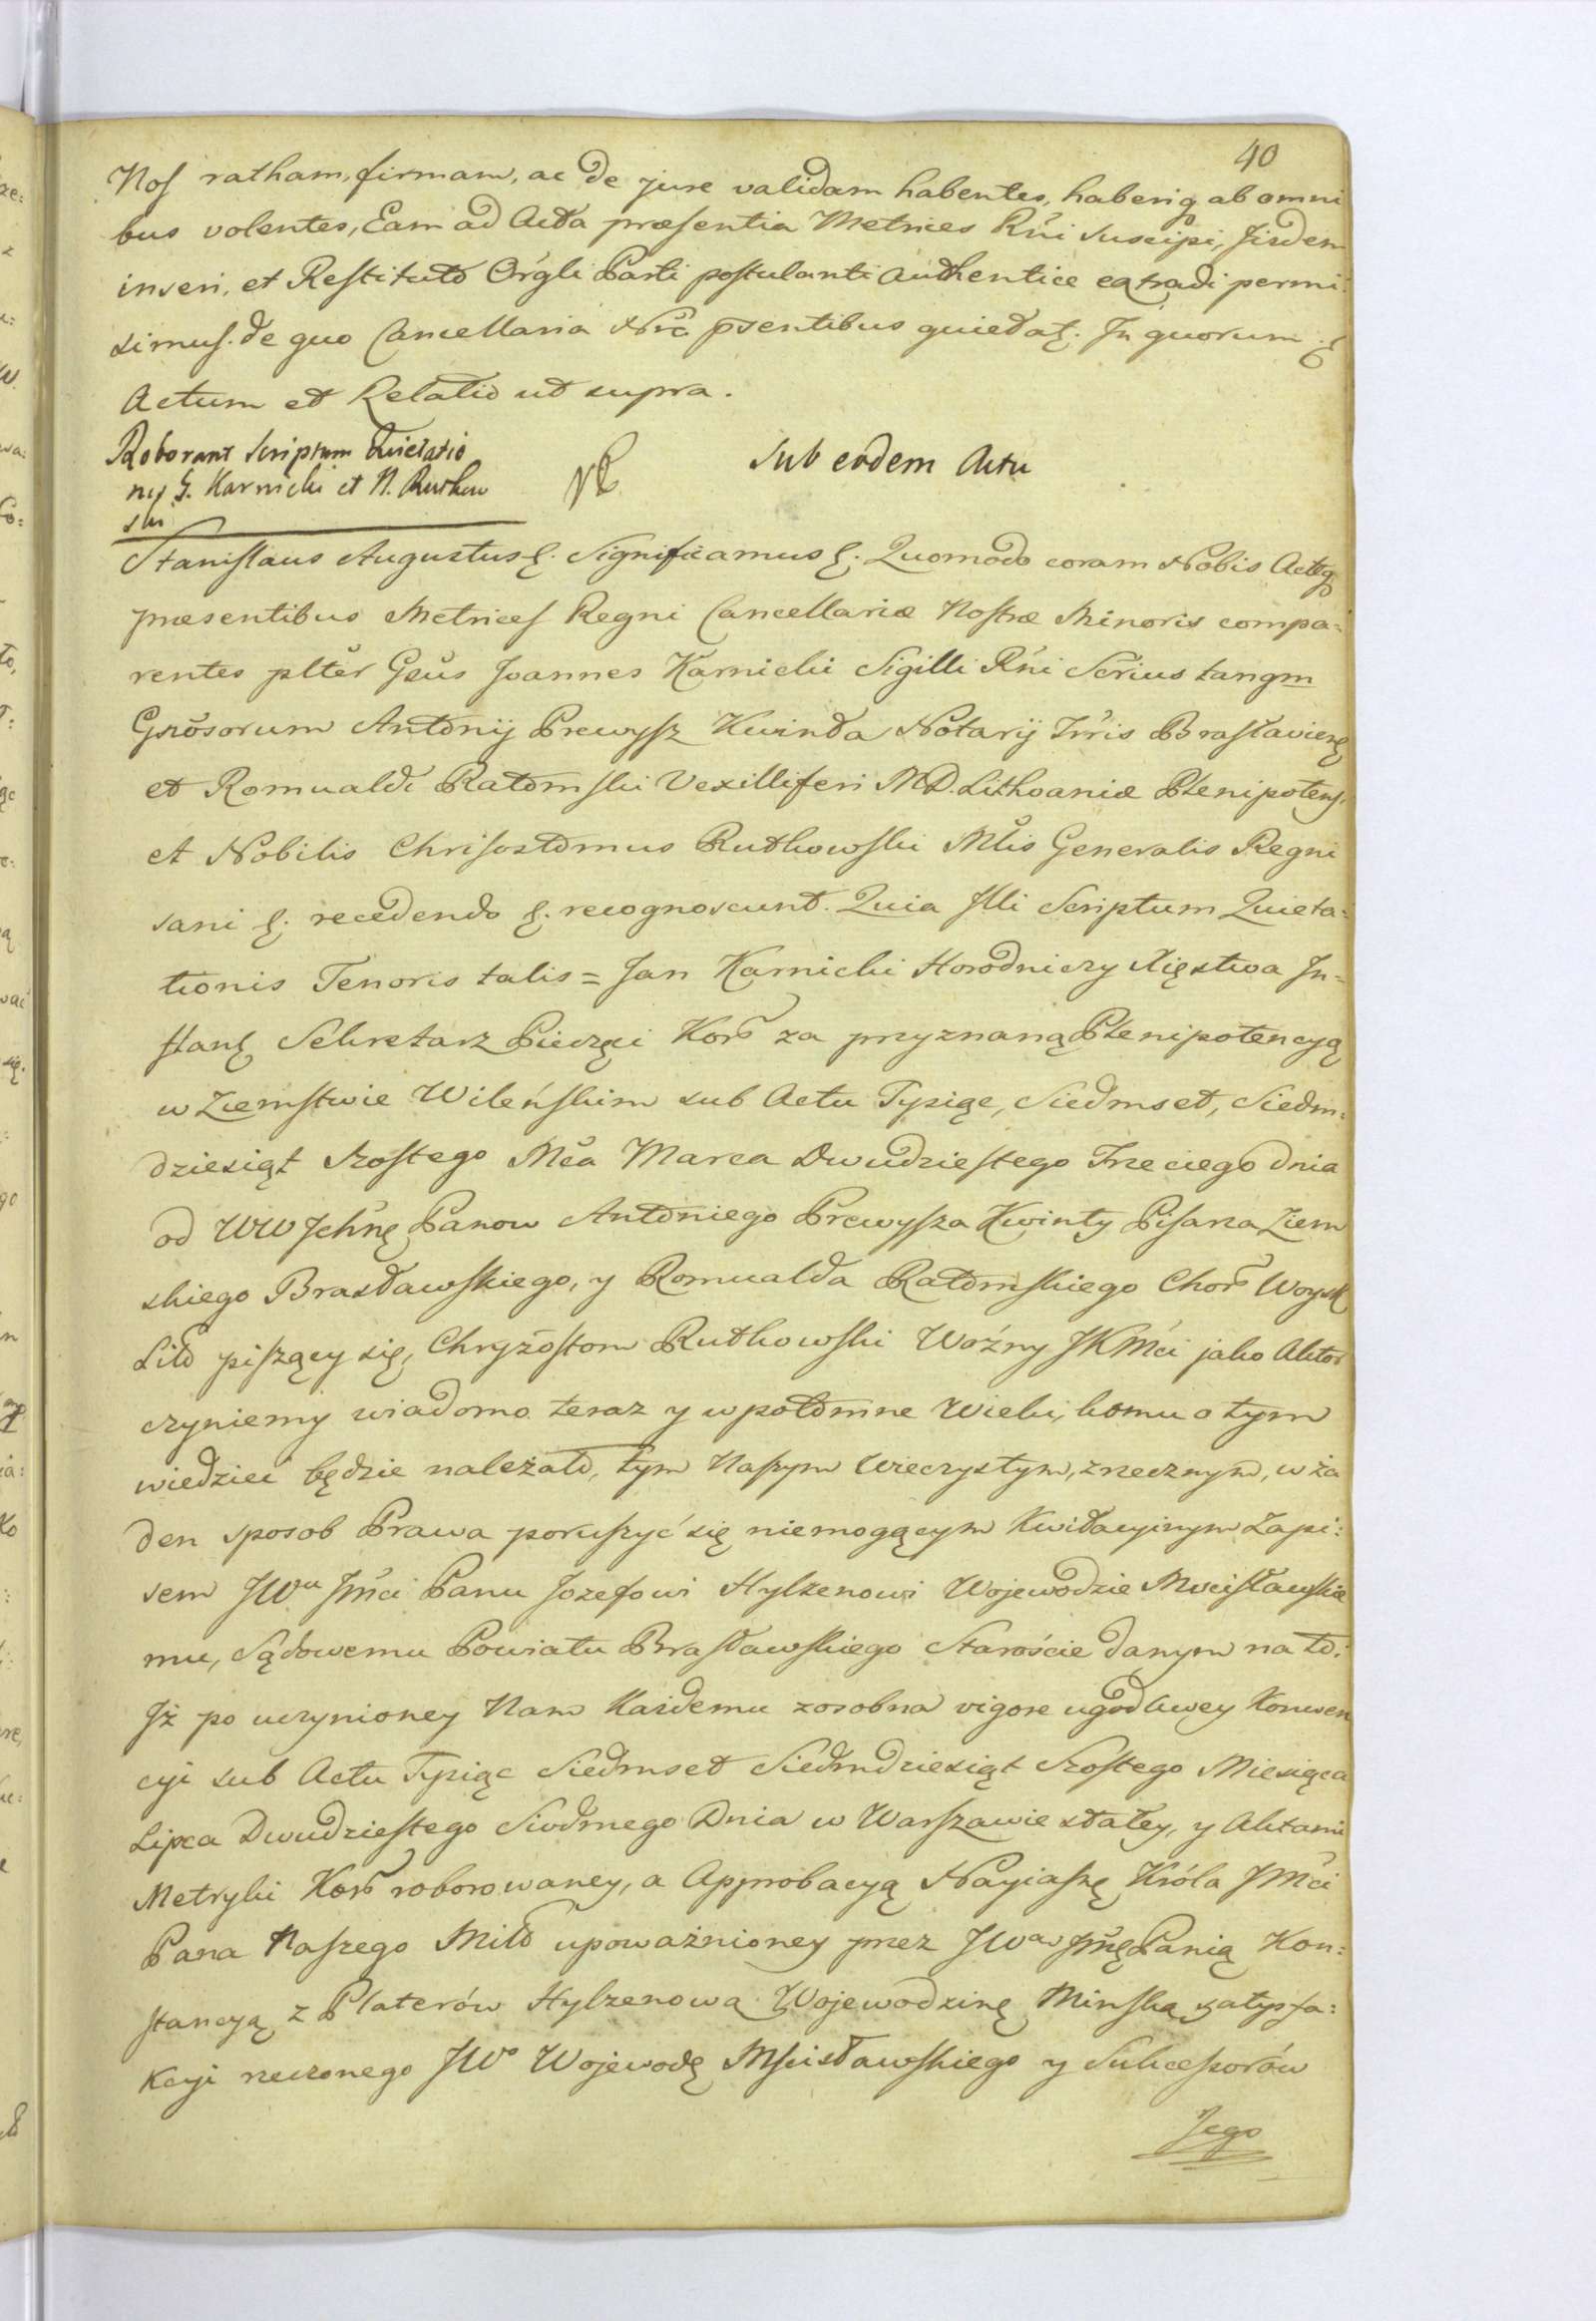 40
Nos ratham, firmam, ac de jure validam habentes, haberiq ab omni
bus volentes, Eam ad Acta præsentia Metrices Rni suscipi, Jisdem
inseri, et Restituto Orgli Parti postulanti authentice extradi permi:
simus. de quo Cancellaria Nra psentibus quietat. In quorum &
Actum et Relatio ut supra.
Roborant Scriptum Quietatio
nis G. Karnicki et N. Rutkow
ski
Sub eodem Actu
Stanislaus Augustus &. Significamus &. Quomodo coram Nobis Actisq
præsentibus Metrices Regni Cancellariæ Nostræ Minoris compa:
rentes plter Gsus Joannes Karnicki Sigilli Rni Scrius tanqm
Gnosorum Antonij Prewysz Kwinta Notarij Trris Braslaviens
et Romualdi Ratomski Vexilliferi M.D. Lithoaniæ Plenipotens.
et Nobilis Chrisostomus Rutkowski Mlis Generalis Regni
sani &. recedendo &. recognoscunt. Quia Illi Scriptum Quieta:
tionis Tenoris talis = Jan Karnicki Horodniczy Xięstwa In=
flant Sekretarz Pieczęci Kor za przyznaną Plenipotencyą
w Ziemstwie Wileńskim sub Actu Tysiąc, Siedmset, Siedm:
dziesiąt Szostego Mca Marca Dwudziestego Trzeciego dnia
od WW Ichm Panow Antoniego Prewysza Kwinty Pisarza Ziem
skiego Brasławskiego, y Romualda Ratomskiego Chor Woysk
Litt piszący się, Chryzostom Rutkowski Woźny JKMci jako Aktor
czyniemy wiadomo teraz y w potomne Wieki, komu o tym
wiedzieć będzie należało, tym Naszym Wieczystym, zrzecznym, w ża
den sposob Prawa poruszyć się niemogącym Kwitacyinym Zapi:
sem JWu Jmci Panu Jozefowi Hylzenowi Wojewodzie Mscisławskie
mu, Sądowemu Powiatu Brasławskiego Staroście danym na to:
Iż po uczynioney Nam Każdemu zosobna vigore ugodliwey Konwen
cyi sub Actu Tysiąc Siedmset Siedmdziesiąt Szostego Miesiąca
Lipca Dwudziestego Siodmego Dnia w Warszawie stałey, y Aktami
Metryki Kor roborowaney, a Approbacyą Nayiasz Króla JMci
Pana Naszego Mił upoważnioney przez JWa Jm Panią Kon:
stancyą z Platerów Hylzenową Wojewodzinę Minską satysfa:
kcyi rzeczonego JWo Wojewodę Mscisławskiego y Sukcessorów
Jego